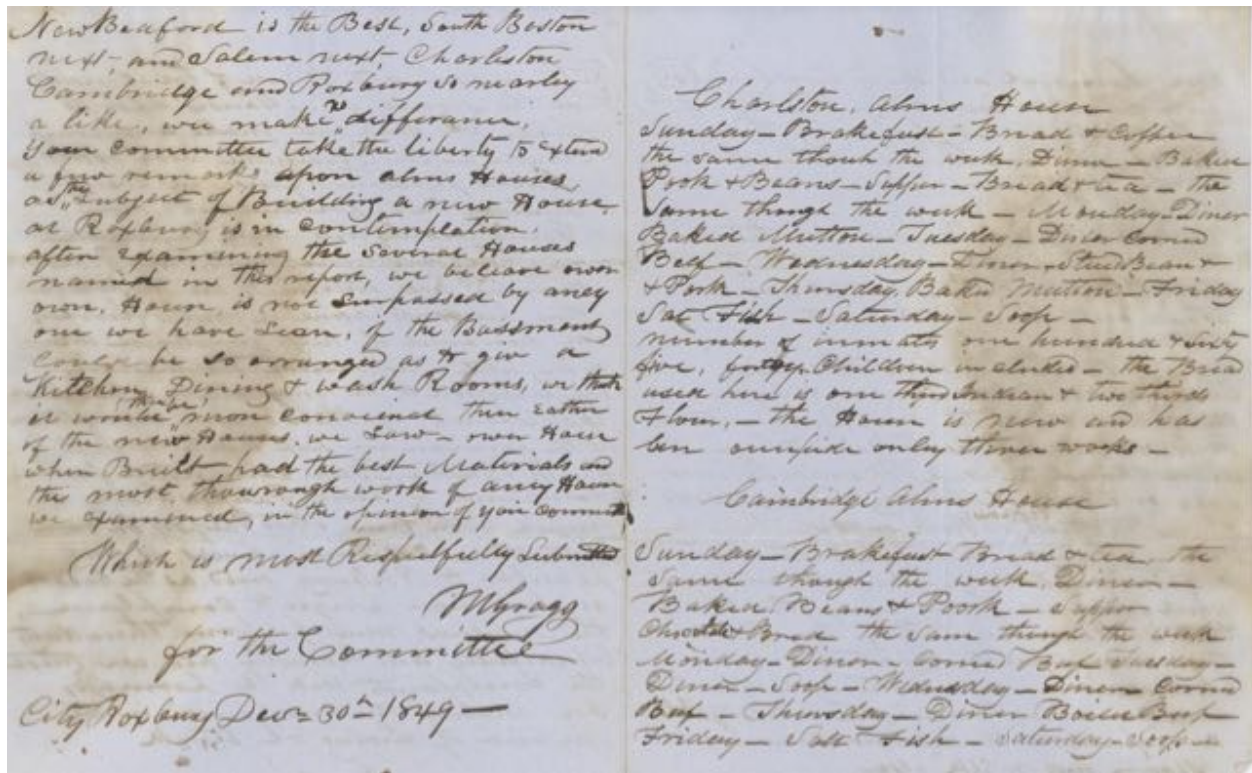 New Beaford is the Best, South Boston
next, and Salem next, Charleston
Cambridge and Roxbury so nearley
a like, wee make no differance,
Your committee take the liberty to extend
a few remarks upon alms Houses,
as the subject of Building a new House,
at Roxbury is in contemplation.
after examining the Several Houses
named in this report, we beleave
own House is not Surpassed by aney
one we have Seen, if the Bassment
Could be so arranged as to give a
Kitchen, Dining & wash Rooms, we think
it would be more then eather
of the new Houses, we Saw - ower House
when Built had the best Materials and
the most thourough work of aney House
we examened, in the opinion of your committee
Which is most Respectfully Submitted
M Gragg
for the Committee
City Roxbury 30th 1849 —
Charlston, Alms House
Sunday - Brakefast - Bread & Coffee
the same though the week, Diner - Baked
Pork & Beans - Supper - Bread & tea - the
Same though the week - Monday - Diner
Baked Mutton - Tuesday - Diner Corned
Beef - Wednesday - Diner Beans
& Pork - Thursday, Baked Mutton - Friday
Salt Fish - Saturday - Soop -
number of inmats one hundred & sixty
five, Children included - the Bread
used here is one third Indean & two thirds
Flour, - the House is new and has
ben only three weeks -
Cambridge Alms House
Sunday - Brakefast Bread & tea the
Same though the week, Diner -
Baked Beans & Poork - Supper
Bread the Same though the week
Monday - Diner - Corned Beef Tuesday -
Diner - Soop - Wednesday - Diner Corned
Beef - Thursday - Diner Boiled Beef
Friday - Salt Fish - Saturday - Soop -